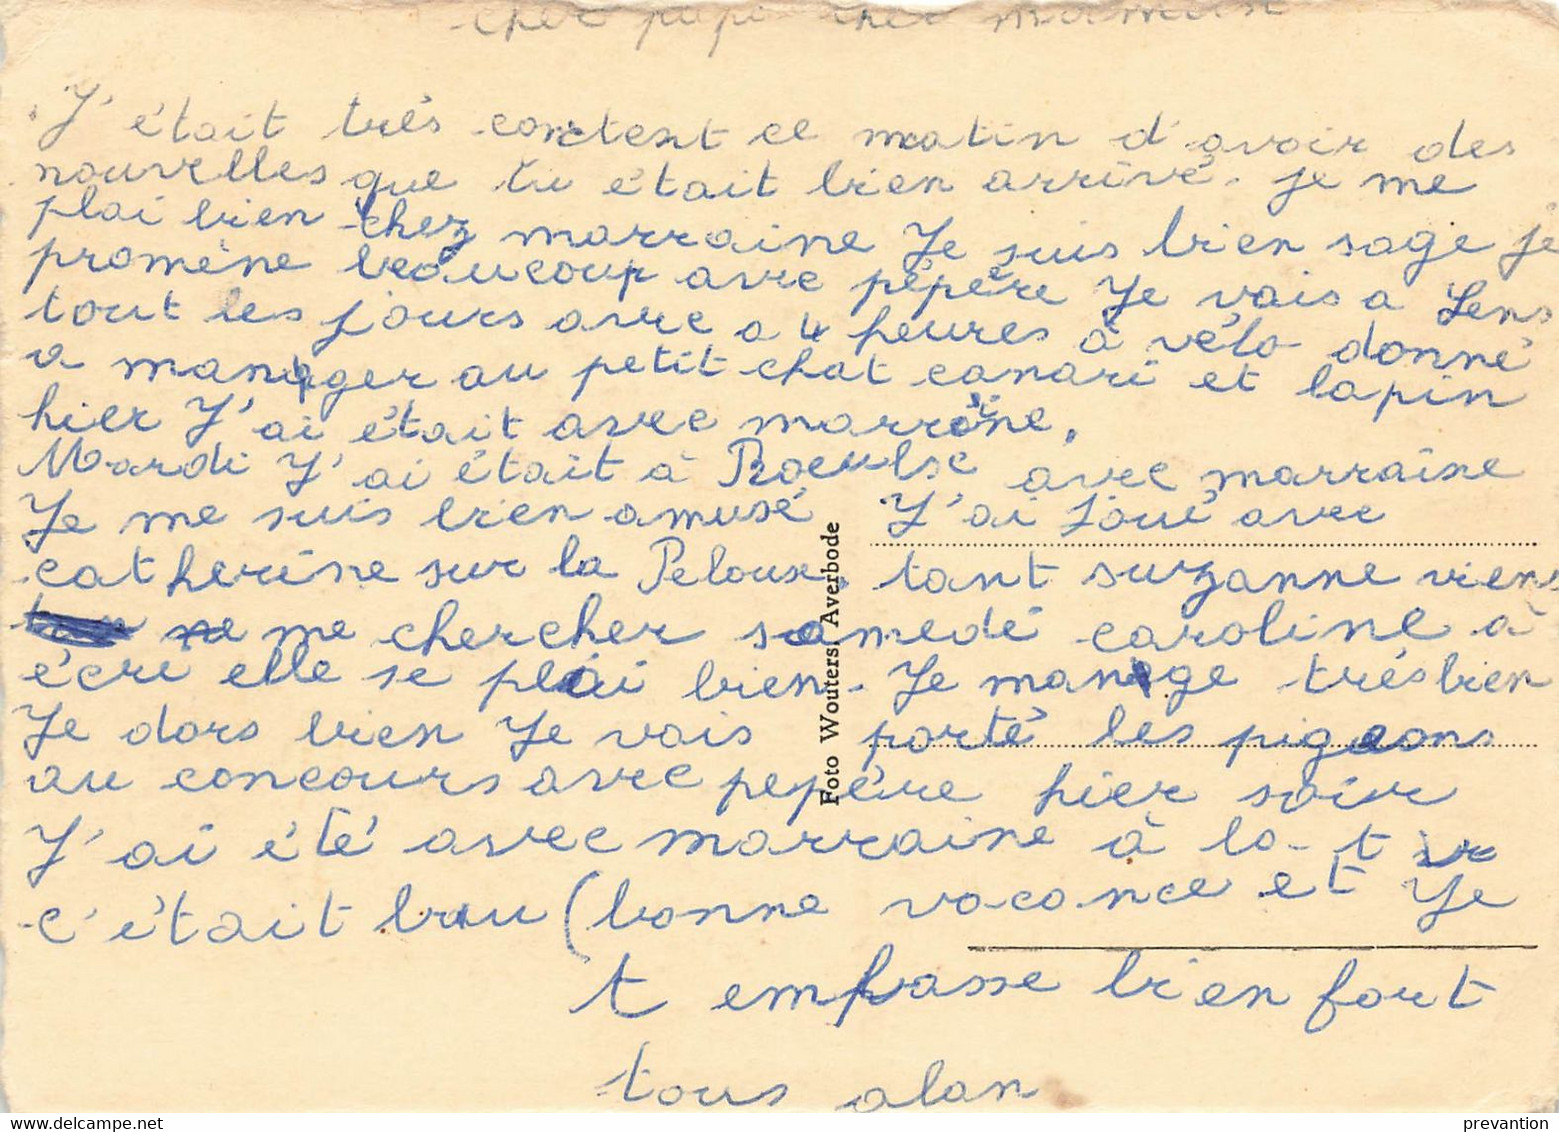 cher papa cher maman
J'était trés contest ce matin d'avoir des
nouvelles que tu était bien arrivé. je me
plai bien chez marraine Je suis bien sage je
promène beaucoup avec pépére Je vais a Lens
tout les jours avec a 4 heures à vélo donné
a manager au petit chat canari et lapin
hier J'ai était avec marraine.
Mardi J'ai était à Roeulse avec marraine
Je me suis bien amusé J'ai Joué avec
catherine sur la Pelouse, tant suzanne viens
ne me chercher samedé caroline à
écri elle se plai bien. Je manage trés bien
Je dors bien Je vais porté les pigeons
au concours avec pepére hier soir
J'ai été avec marraine à la t ir
c'était bau (bonne vacance et Je
t embrasse bien fort
tous alan
Foto Wouters, Averbode
prevantion